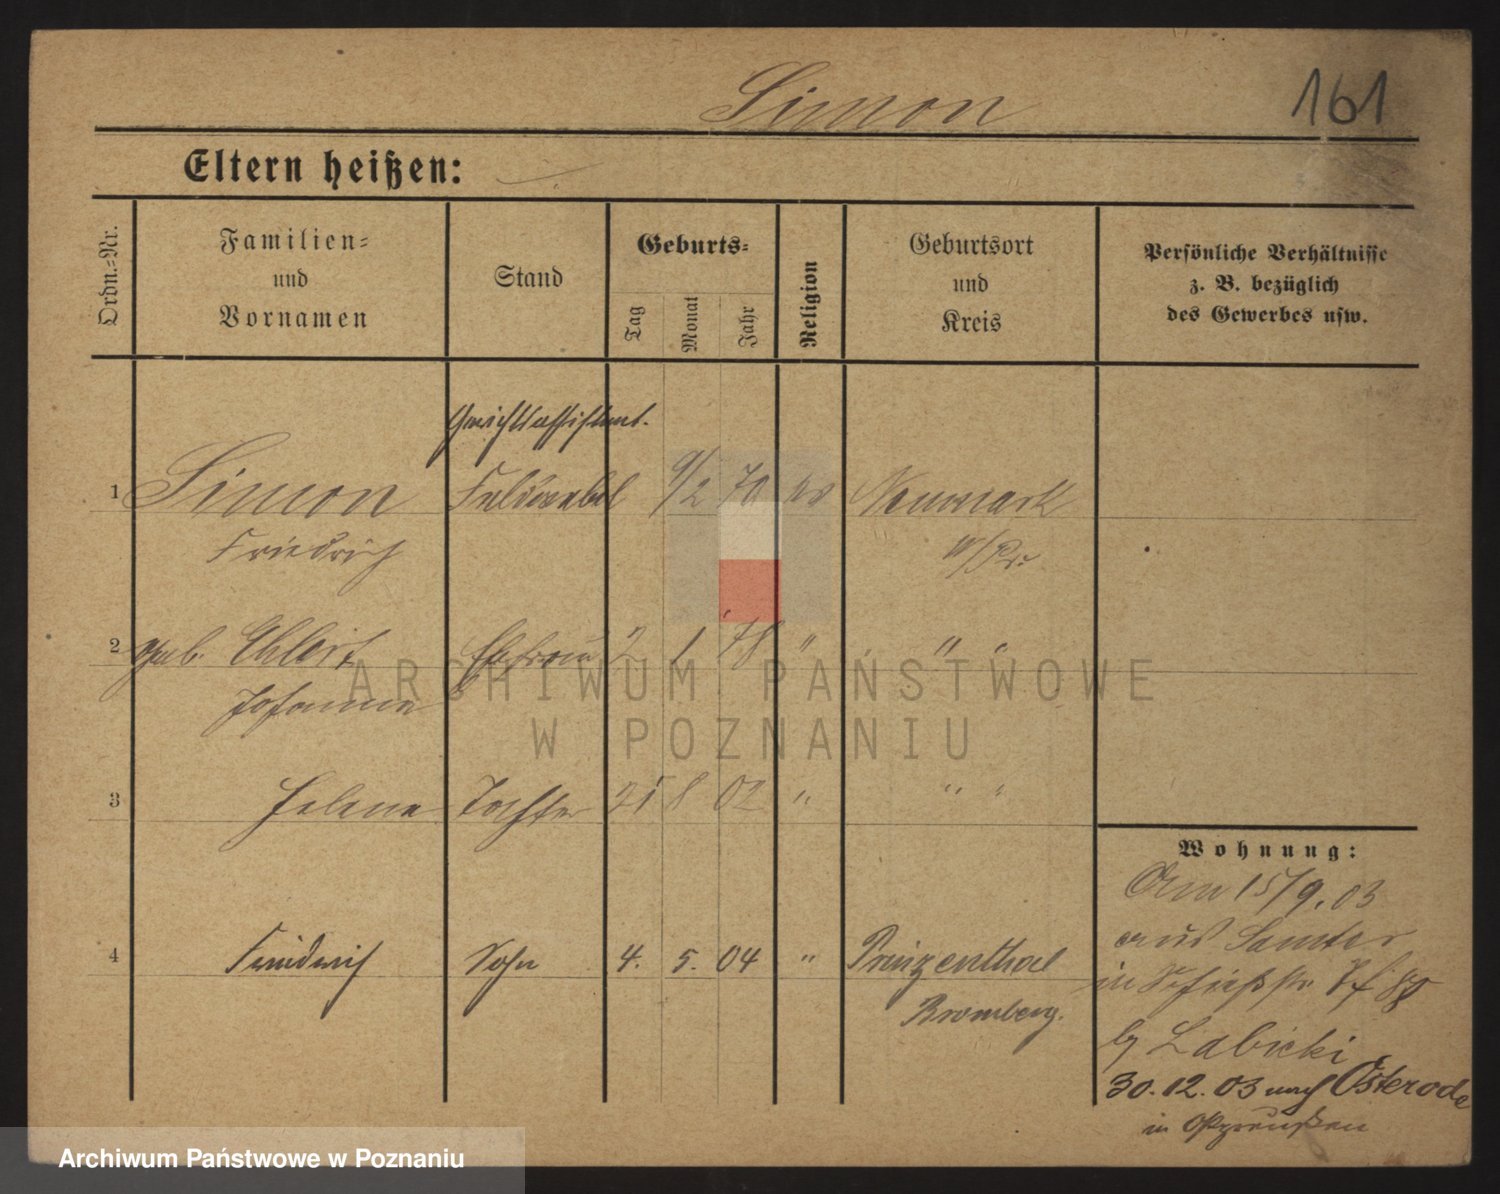 Simon
161
Eltern heißen:
Ordn.=Nr.
Familien=
und
Vornamen
Stand
Geburts=
Tag
Monat
Jahr
Religion
Geburtsort
und
Kreis
Persönliche Verhältnisse
z. B. bezüglich
des Gewerbes usw.
Gerichtsassistent.
1 Simon Feldwebel 9/2 70 ev Neumark
Friedrich W/Pr.
2 geb. Ehlert Ehefrau 2 1 78 " " "
Johanna
3 Helene Tochter 21 8 02 " " "
4 Friedrich Sohn 4. 5. 04 " Prinzenthal
Bromberg.
Wohnung:
Am 15/9. 03
aus Samter
in
by Labicki
30. 12. 03 nach Osterode
in Ostpreußen
ARCHIWUM PAŃSTWOWE
W POZNANIU
Archiwum Państwowe w Poznaniu